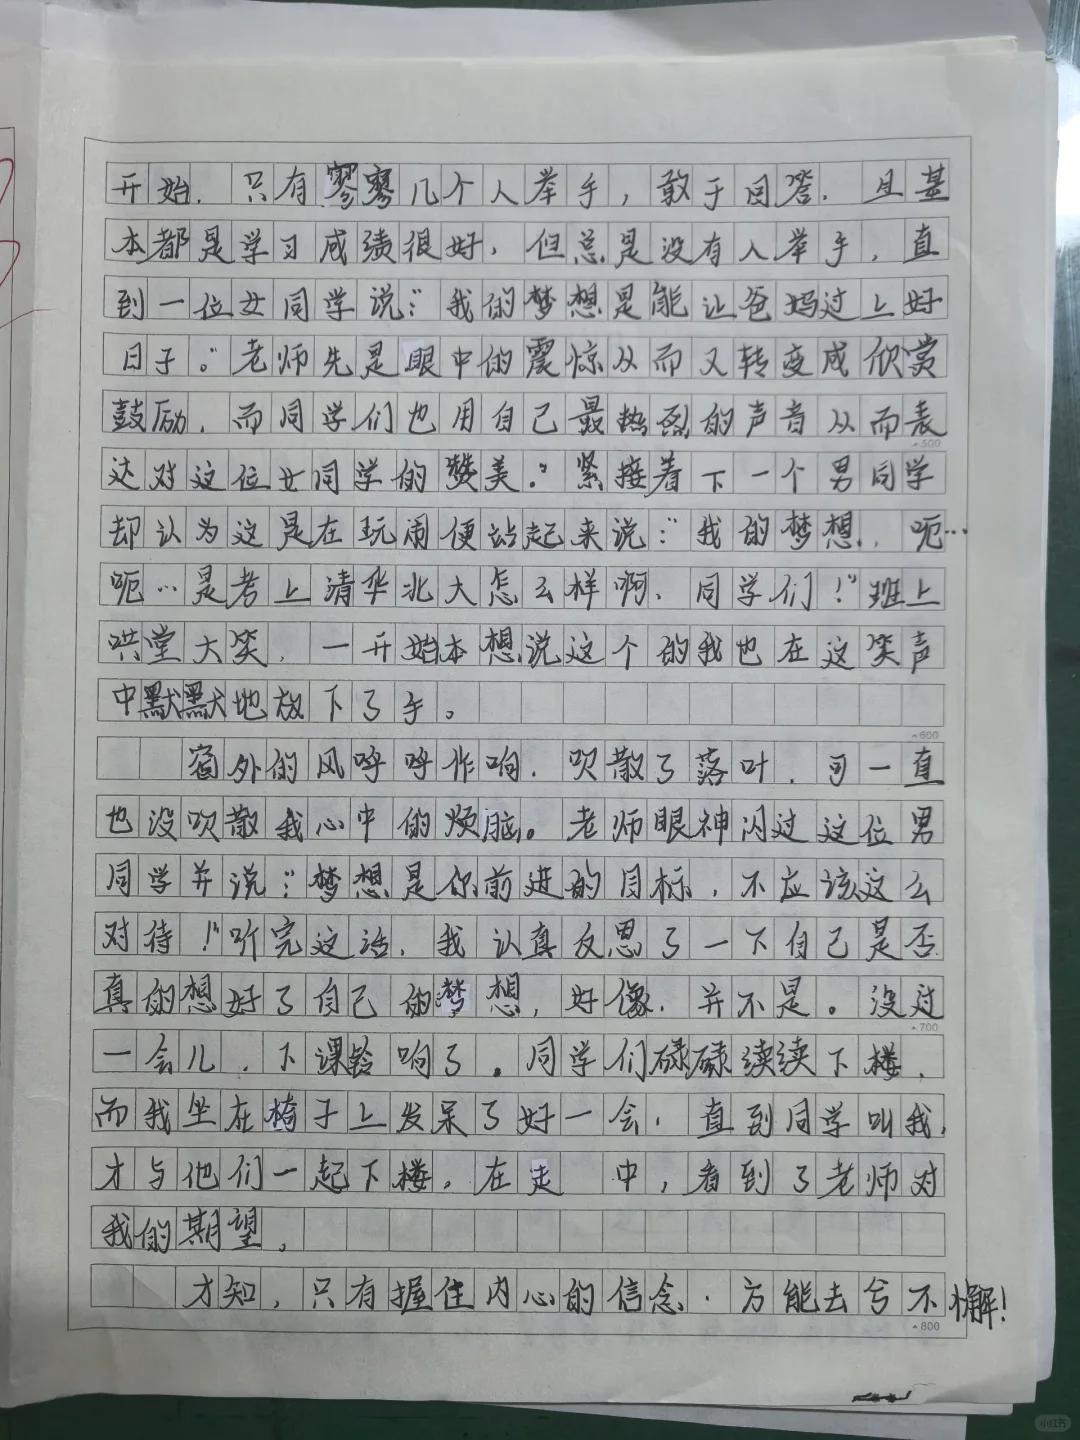 开始，只有寥寥几个人举手，敢于回答，且基
本都是学习成绩很好，但总是没有人举手，直
到一位女同学说：“我的梦想是能让爸妈过上好
日子。”老师先是眼中的震惊从而又转变成欣赏
鼓励，而同学们也用自己最热烈的声音从而表
▲500
达对这位女同学的赞美。”紧接着下一个男同学
却认为这是在玩闹便站起来说：“我的梦想，呃…
呃…是考上清华北大怎么样啊，同学们！”班上
哄堂大笑，一开始本想说这个的我也在这笑声
中默默地放下了手。
▲600
窗外的风呼呼作响，吹散了落叶，可一直
也没吹散我心中的烦脑。老师眼神闪过这位男
同学并说：“梦想是你前进的目标，不应该这么
对待！”听完这话，我认真反思了一下自己是否
真的想好了自己的梦想，好像，并不是。没过
▲700
一会儿，下课铃响了。同学们碌碌续续下楼，
而我坐在椅子上发呆了好一会，直到同学叫我，
才与他们一起下楼，在走 中，看到了老师对
我的期望。
才知，只有握住内心的信念，方能去兮不懈！
▲800
小红书